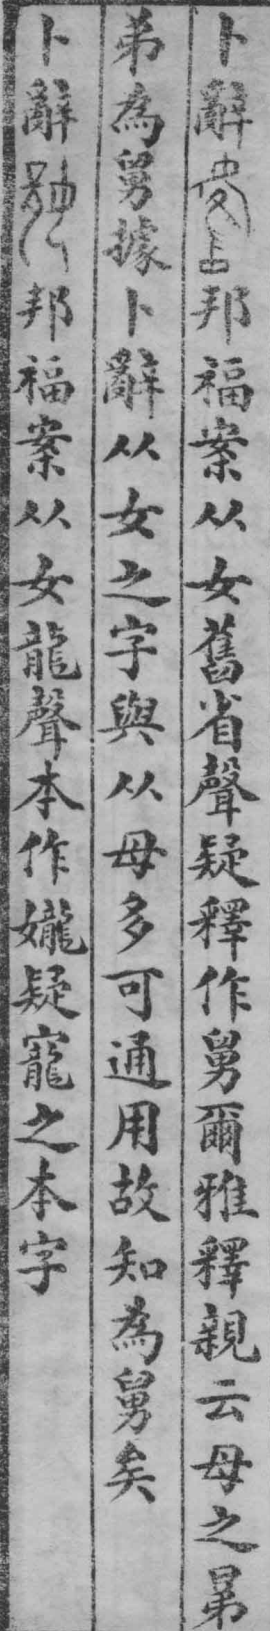 卜辭邦福案从女舊省聲疑釋作舅爾雅釋親云母之晜
弟為舅據卜辭从女之字與从母多可通用故知為舅矣
卜辭邦福案从女龍聲本作孃疑寵之本字